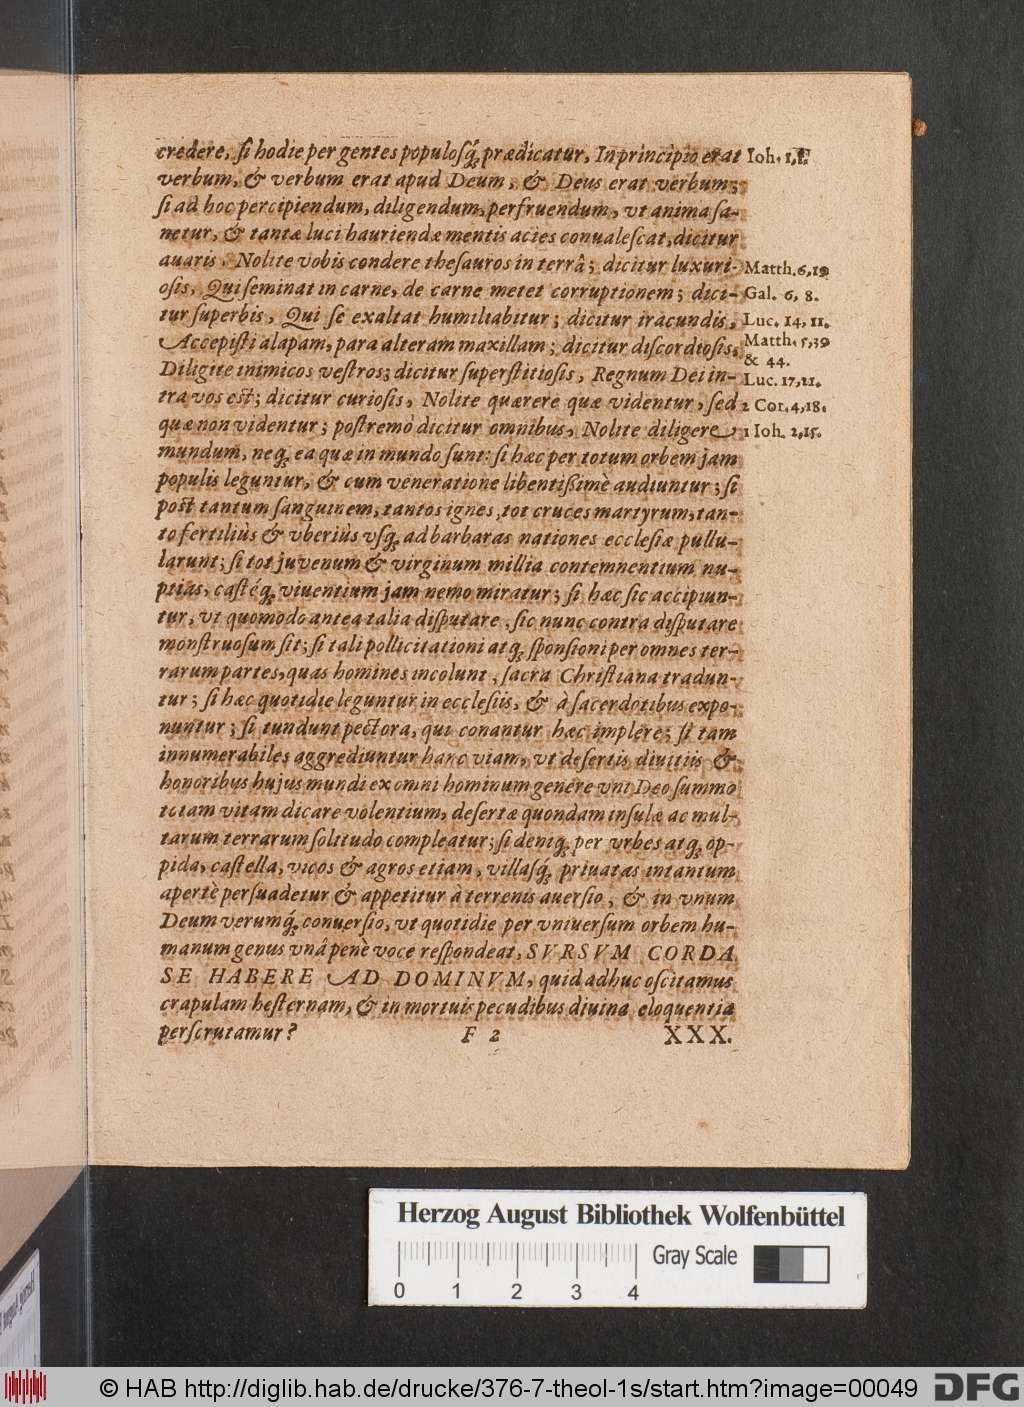 credere, ſi hodie per gentes populoſq́, prædicatur, In principio erat Ioh. 1,1.
verbum, & verbum erat apud Deum, & Deus erat verbum;
ſi ad hoc percipiendum, diligendum, perfruendum, vt anima ſa-
netur, & tantæ luci hauriendæ mentis acies conualeſcat, dicitur
auaris, Nolite vobis condere theſauros in terrâ; dicitur luxuri- Matth. 6,19
oſis, Qui ſeminat in carne, de carne metet corruptionem; dici- Gal. 6, 8.
tur ſuperbis, Qui ſe exaltat humiliabitur; dicitur iracundis, Luc. 14, 11.
Accepiſti alapam, para alteram maxillam; dicitur diſcordioſis, Matth. 5,39
& 44.
Diligite inimicos veſtros; dicitur ſuperſtitioſis, Regnum Dei in- Luc. 17,21.
tra vos eſt; dicitur curioſis, Nolite quærere quæ videntur, ſed 2 Cor. 4,18.
quæ non videntur; poſtremò dicitur omnibus, Nolite diligere 1 Ioh. 2,15.
mundum, neq́, ea quæ in mundo ſunt: ſi hæc per totum orbem jam
populis leguntur, & cum veneratione libentißimè audiuntur; ſi
poſt tantum ſanguinem, tantos ignes, tot cruces martyrum, tan-
to fertiliùs & vberiùs vſq́, ad barbaras nationes eccleſiæ pullu-
larunt; ſi tot juvenum & virginum millia contemnentium nu-
ptias, caſtéq́, viuentium jam nemo miratur; ſi hæc ſic accipiun-
tur, vt quomodo antea talia diſputare, ſic nunc contra diſputare
monſtruoſum ſit; ſi tali pollicitationi atq́, ſponſioni per omnes ter-
rarum partes, quas homines incolunt, ſacra Chriſtiana tradun-
tur; ſi hæc quotidie leguntur in eccleſiis, & à ſacerdotibus expo-
nuntur; ſi tundunt pectora, qui conantur hæc implere; ſi tam
innumerabiles aggrediuntur hanc viam, vt deſertis diuitiis &
honoribus hujus mundi ex omni hominum genere vni Deo ſummo
totam vitam dicare volentium, deſertæ quondam inſulæ ac mul-
tarum terrarum ſolitudo compleatur; ſi deniq́, per vrbes atq́, op-
pida, caſtella, vicos & agros etiam, villaſq́, priuatas intantum
apertè perſuadetur & appetitur à terrenis auerſio, & in vnum
Deum verumq́, conuerſio, vt quotidie per vniuerſum orbem hu-
manum genus vnâ penè voce reſpondeat, SVRSVM CORDA
SE HABERE AD DOMINVM, quid adhuc oſcitamus
crapulam heſternam, & in mortuis pecudibus diuina eloquentia
perſcrutamur? F 2 XXX.
Herzog August Bibliothek Wolfenbüttel
Gray Scale
0 1 2 3 4
© HAB http://diglib.hab.de/drucke/376-7-theol-1s/start.htm?image=00049 DFG